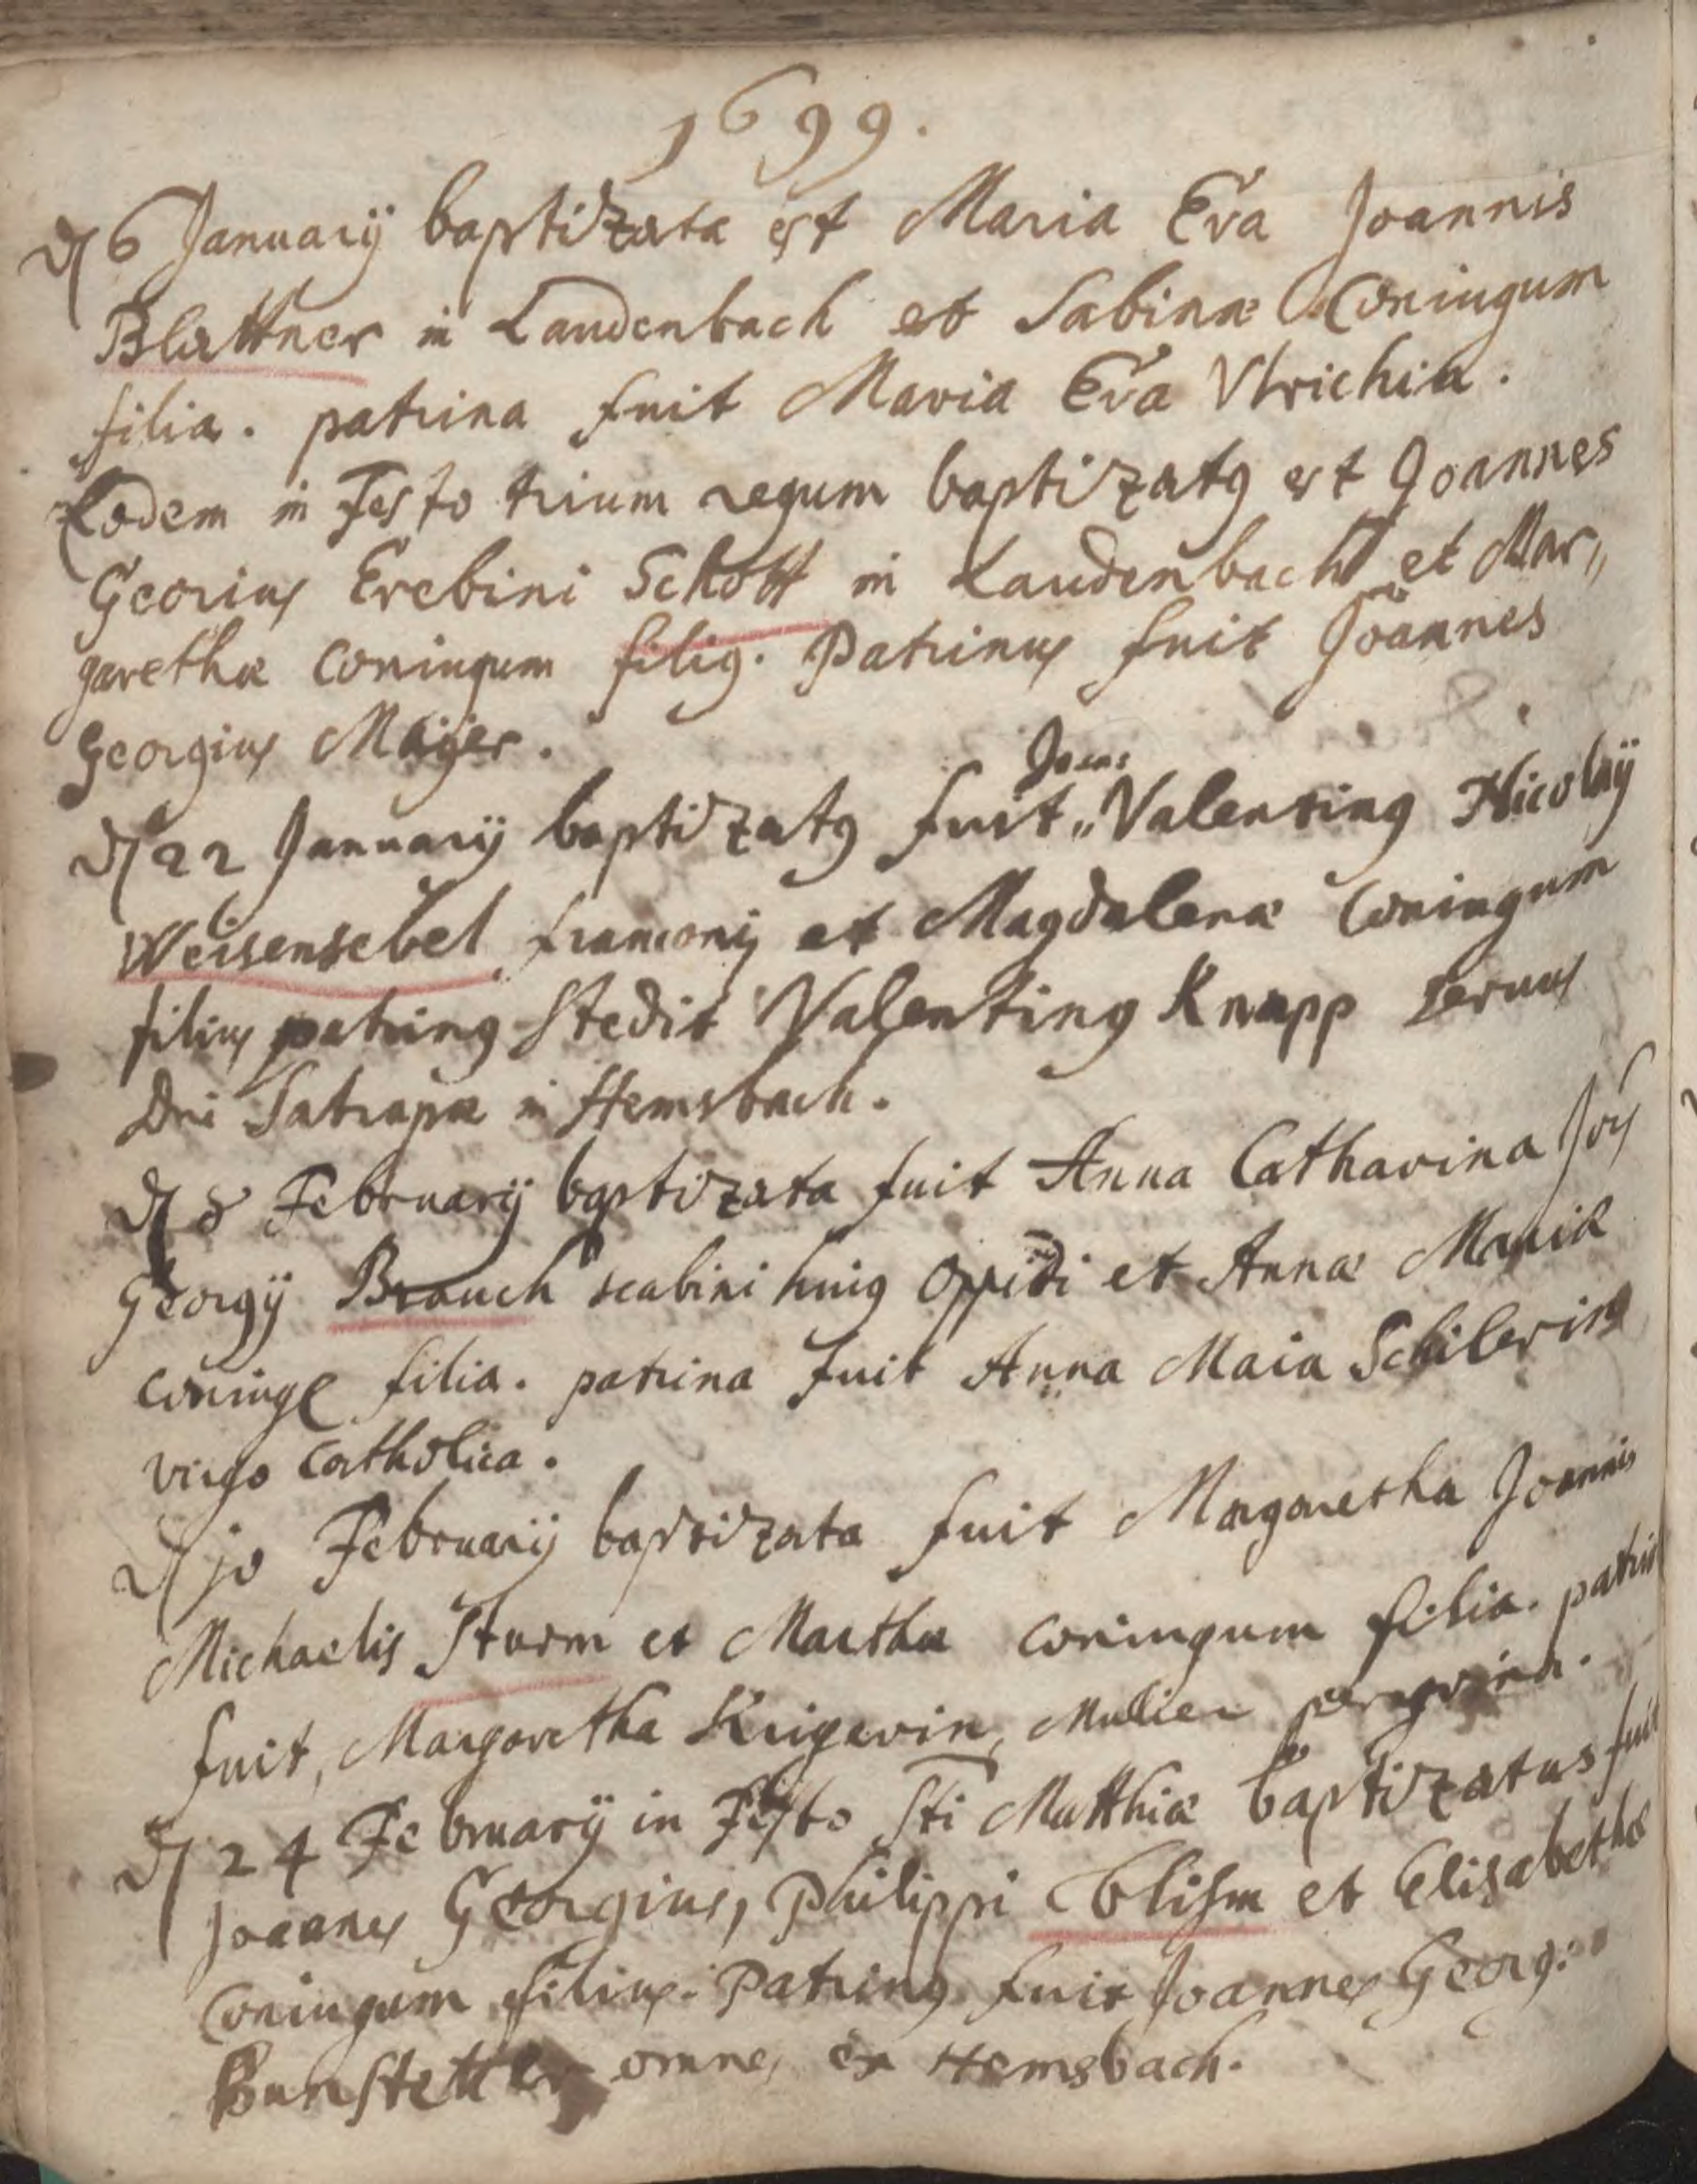 1699.
d 6 Januarij baptizata est Maria Eva Joannis
Blattner in Laudenbach et Sabinæ Coniugum
filia. patrina fuit Maria Eva Vlrichin.
Eodem in Festo trium regum baptizatꝰ est Joannes
Georius Erebini Schott in Laudenbach et Mar„
garethæ coniugum filiꝰ. Patrinus fuit Joannes
Georgius Maÿer.
Joaes
d 22 Januarij baptizatꝰ fuit„ Valentinꝰ Nicolaÿ
Weisensebel franconis et Magdalenæ Coniugum
filius patrinꝰ stedit Valentinꝰ Knapp seruus
Dni Satrapæ in Hemsbach.
d 8 Februarij baptizata fuit Anna Catharina Jois
Georgÿ Brauch scabini huiꝰ oppidi et Annæ Mariæ
coniugū filia. patrina fuit Anna Maia Schilerin
virgo catholica.
d jo Februarij baptizata fuit Margaretha Joannis
Michaelis Sturm et Marthæ coniugum filia. patrin
fuit, Margaretha Krigerin, mulier peregrina.
d 24 Februarÿ in Festo Sti Matthiæ baptizatus fuit
Joannes Georgius, Philippi Ehlism et Elisabethæ
Coniugum filius. Patrinꝰ fuit Joannes Georg:
Bunstetter omnes ex Hemsbach.